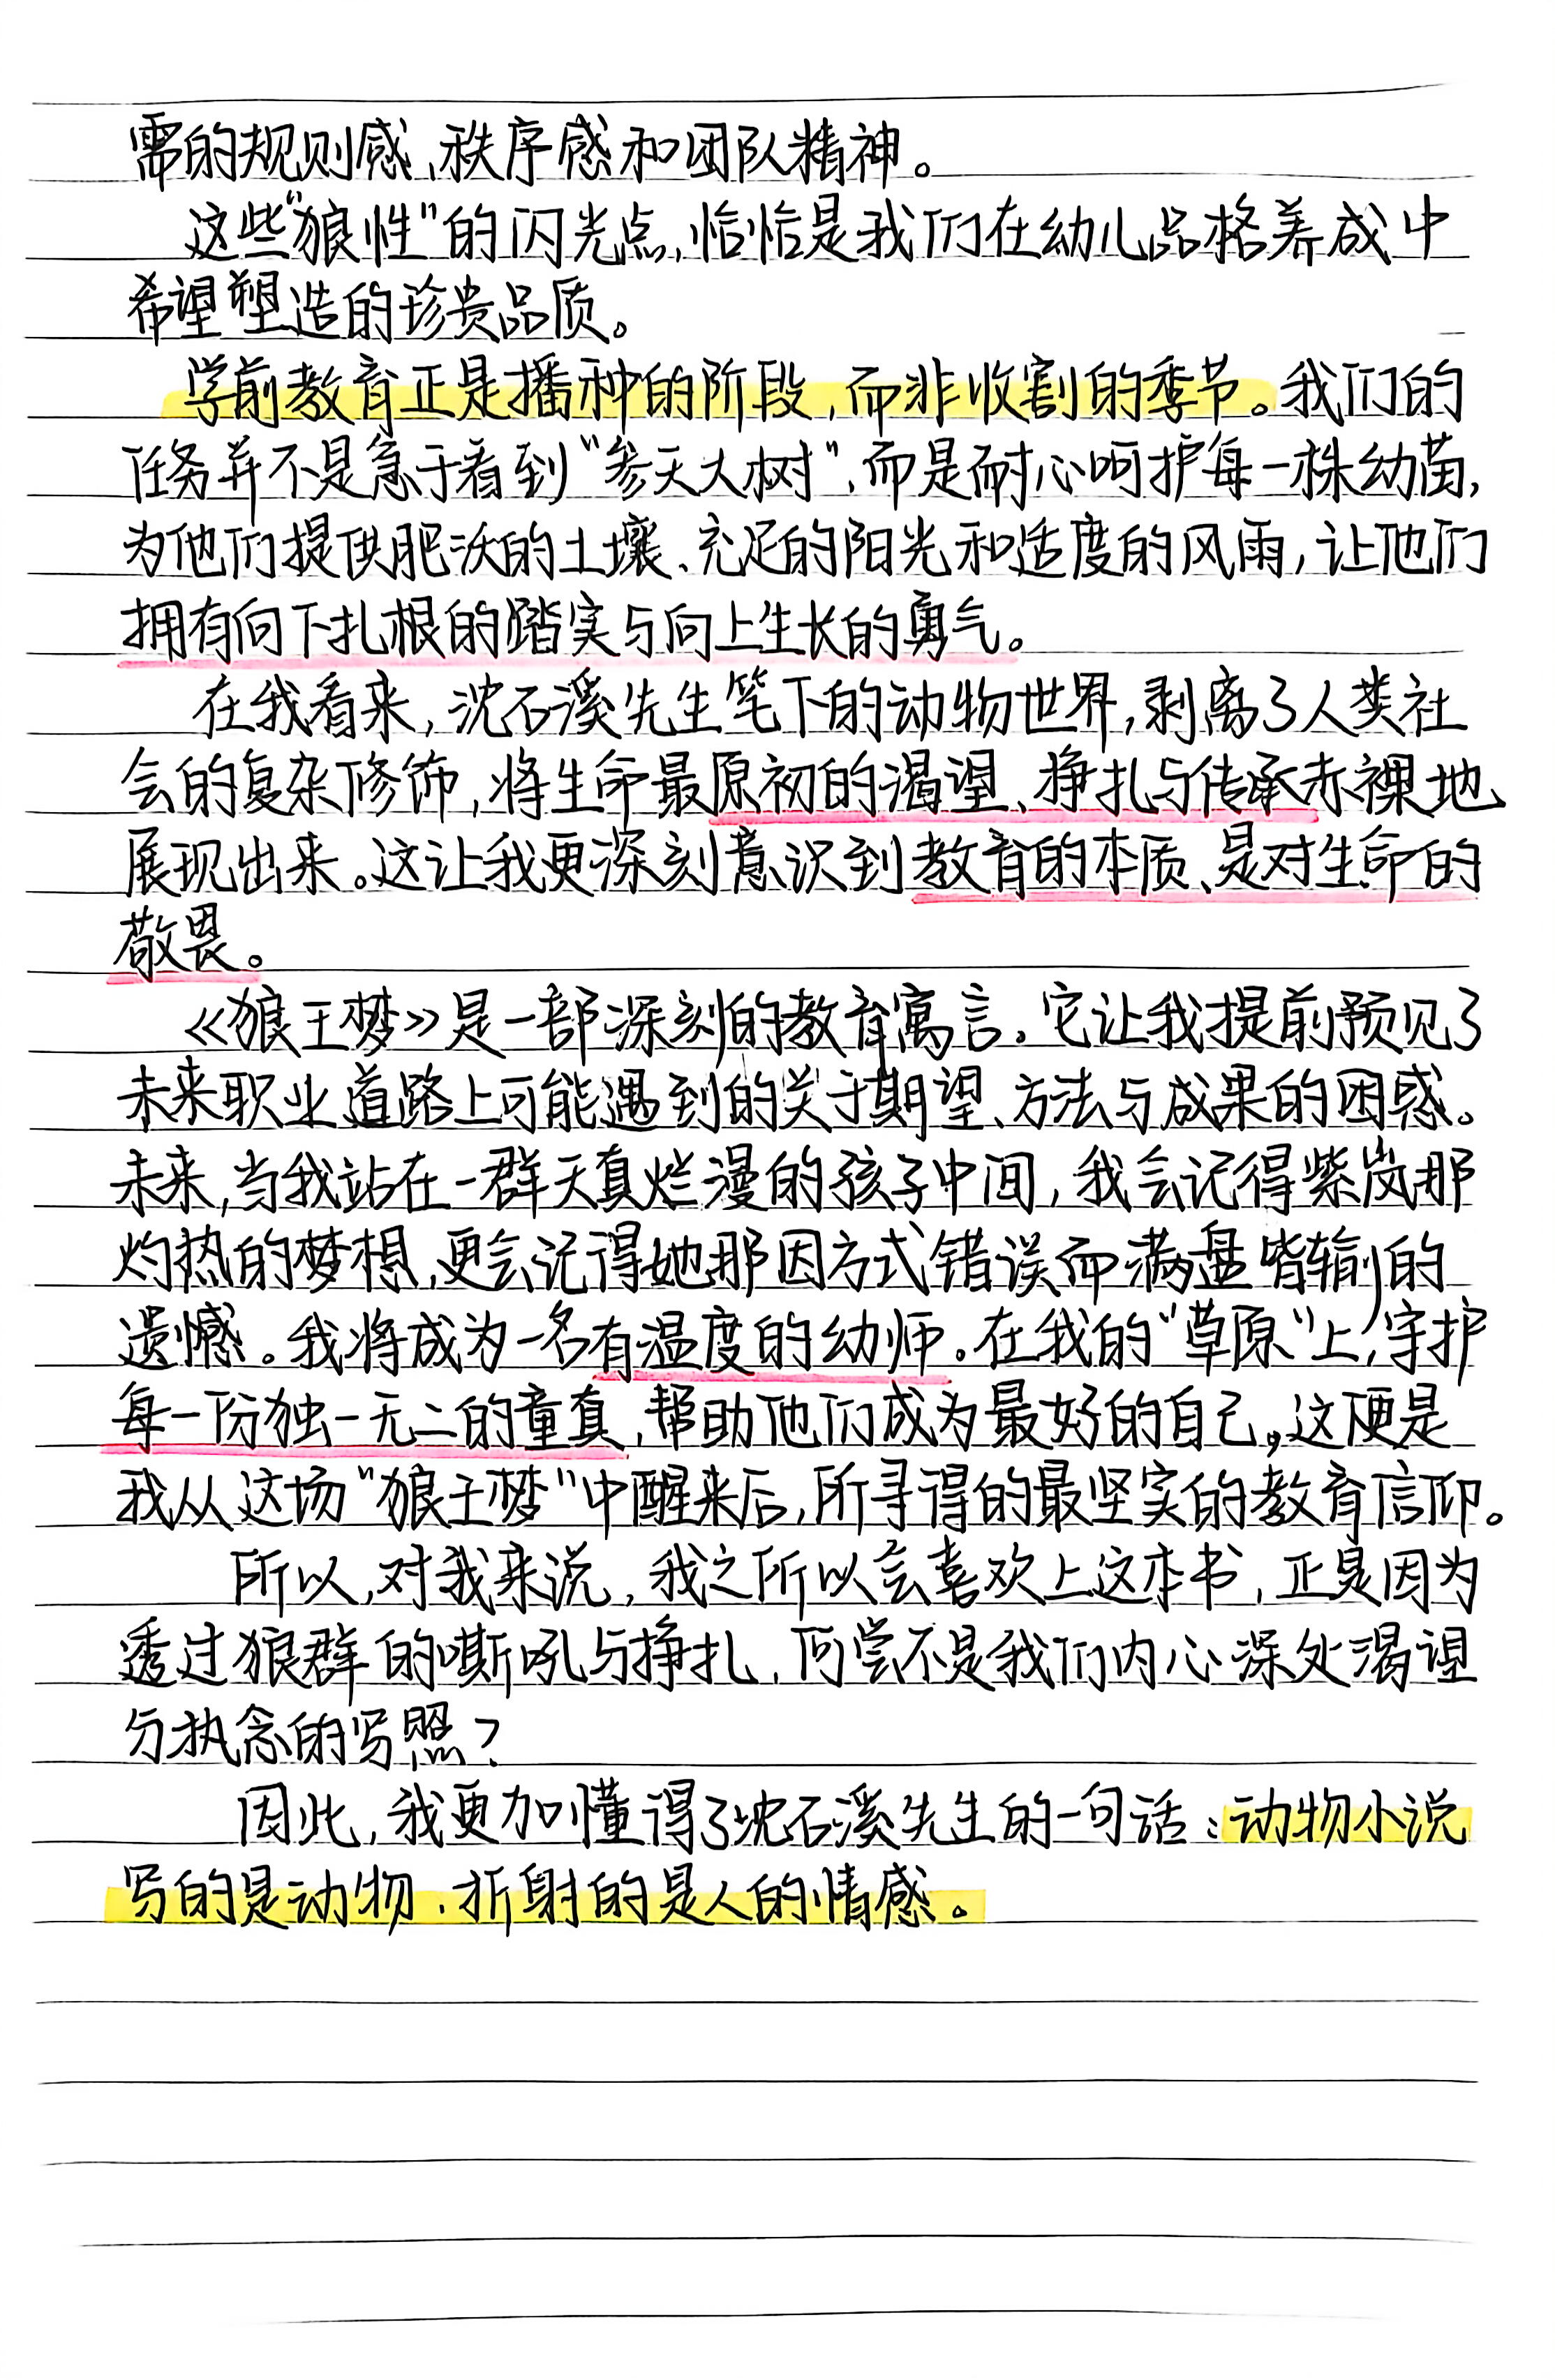 需的规则感、秩序感和团队精神。
这些"狼性"的闪光点,恰恰是我们在幼儿品格养成中
希望塑造的珍贵品质。
学前教育正是播种的阶段,而非收割的季节。我们的
任务并不是急于看到"参天大树",而是耐心呵护每一株幼苗,
为他们提供肥沃的土壤、充足的阳光和适度的风雨,让他们
拥有向下扎根的踏实与向上生长的勇气。
在我看来,沈石溪先生笔下的动物世界,剥离了人类社
会的复杂修饰,将生命最原初的渴望、挣扎与传承赤裸地
展现出来。这让我更深刻意识到教育的本质、是对生命的
敬畏。
《狼王梦》是一部深刻的教育寓言。它让我提前预见了
未来职业道路上可能遇到的关于期望、方法与成果的困惑。
未来,当我站在一群天真烂漫的孩子中间,我会记得紫岚那
灼热的梦想,更会记得她那因方式错误而满盘皆输的
遗憾。我将成为一名有温度的幼师。在我的"草原"上,守护
每一份独一无二的童真,帮助他们成为最好的自己,这便是
我从这场"狼王梦"中醒来后,所寻得的最坚实的教育信仰。
所以,对我来说,我之所以会喜欢上这本书,正是因为
透过狼群的嘶吼与挣扎,何尝不是我们内心深处渴望
与执念的写照?
因此,我更加懂得了沈石溪先生的一句话:动物小说
写的是动物、折射的是人的情感。